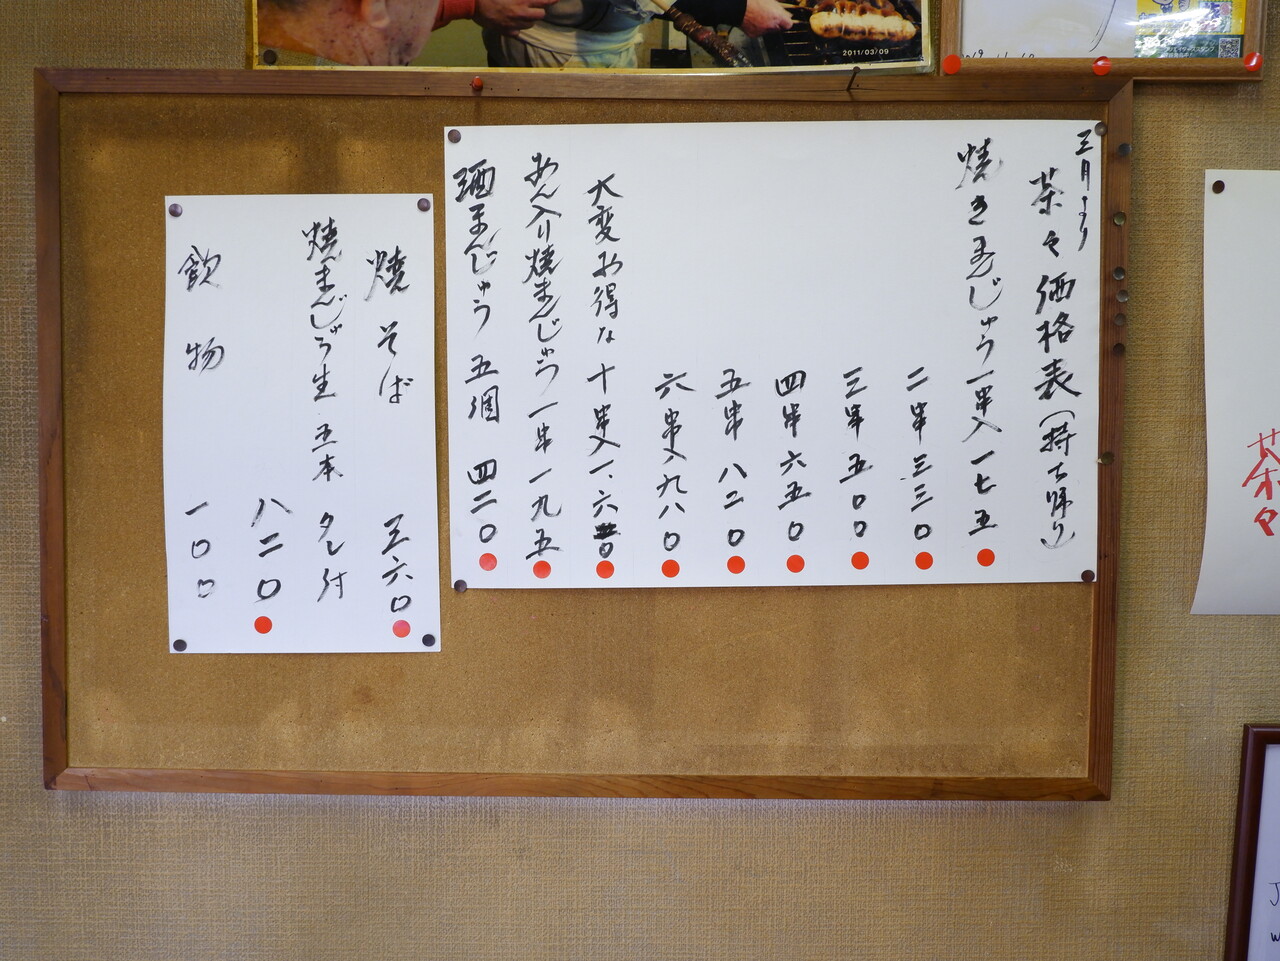 三月より
茶々価格表(持ち帰り)
焼きまんじゅう一串入一七五
二串三三〇
三串五〇〇
四串六五〇
五串八二〇
六串入九八〇
大変お得な十串入一、六
あん入り焼まんじゅう一串一九五
酒まんじゅう五個四二〇
焼そば三六〇
焼まんじゅう生五本タレ付
八二〇
飲物一〇〇
2011/03/09
茶々